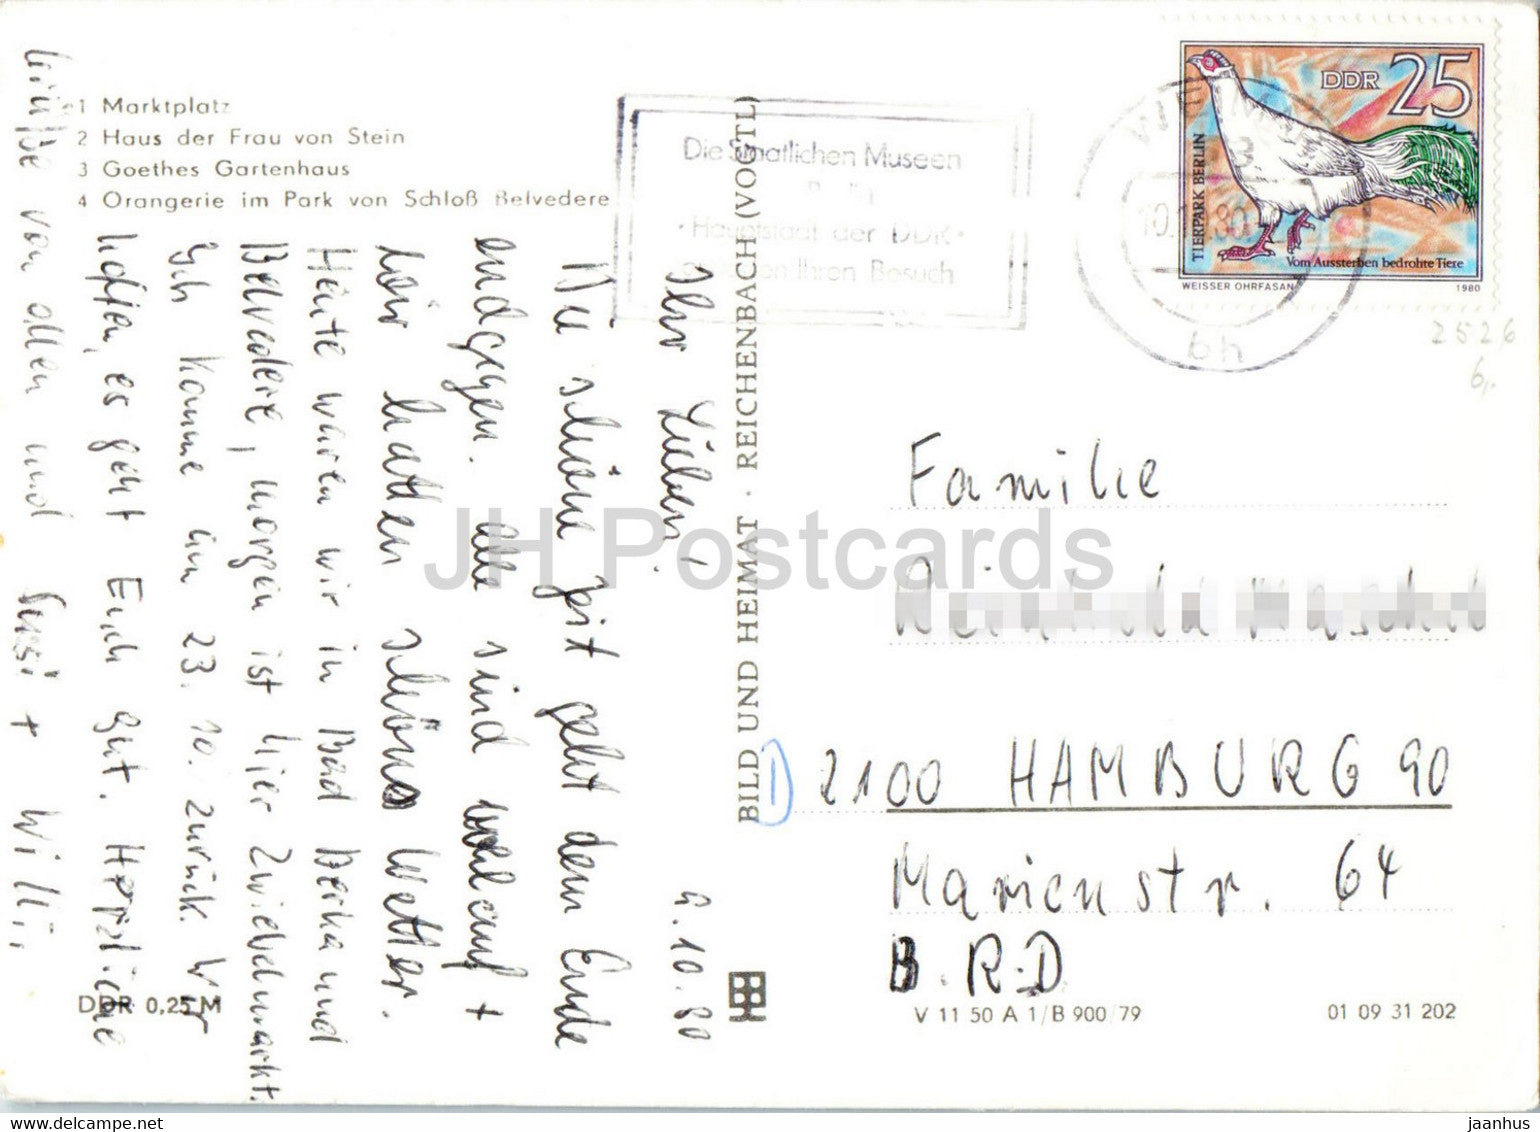 1 Marktplatz
2 Haus der Frau von Stein
3 Goethes Gartenhaus
4 Orangerie im Park von Schloß Belvedere
Die Staatlichen Museen
Berlin
· Hauptstadt der DDR ·
Ihren Besuch
DDR 25
TIERPARK BERLIN
Vom Aussterben bedrohte Tiere
WEISSER OHRFASAN 1980
10. 80
bh
2526
6,-
9.10.80
Ihr Lieben!
Die schöne Zeit geht dem Ende
entgegen. Alle sind wohlauf +
wir hatten schönes Wetter.
Heute waren wir in Bad Berka und
Belvedere, morgen ist hier Zwiebelmarkt.
Ich komme am 23. 10. zurück. Wir
hoffen, es geht Euch gut. Herzliche
Grüße von allen und Susi + Willi,
BILD UND HEIMAT · REICHENBACH (VOGTL)
Familie
2100 HAMBURG 90
Marienstr. 64
B.R.D
DDR 0,25 M
V 11 50 A 1/B 900/79
01 09 31 202
JH Postcards
www.delcampe.net
jaanhus